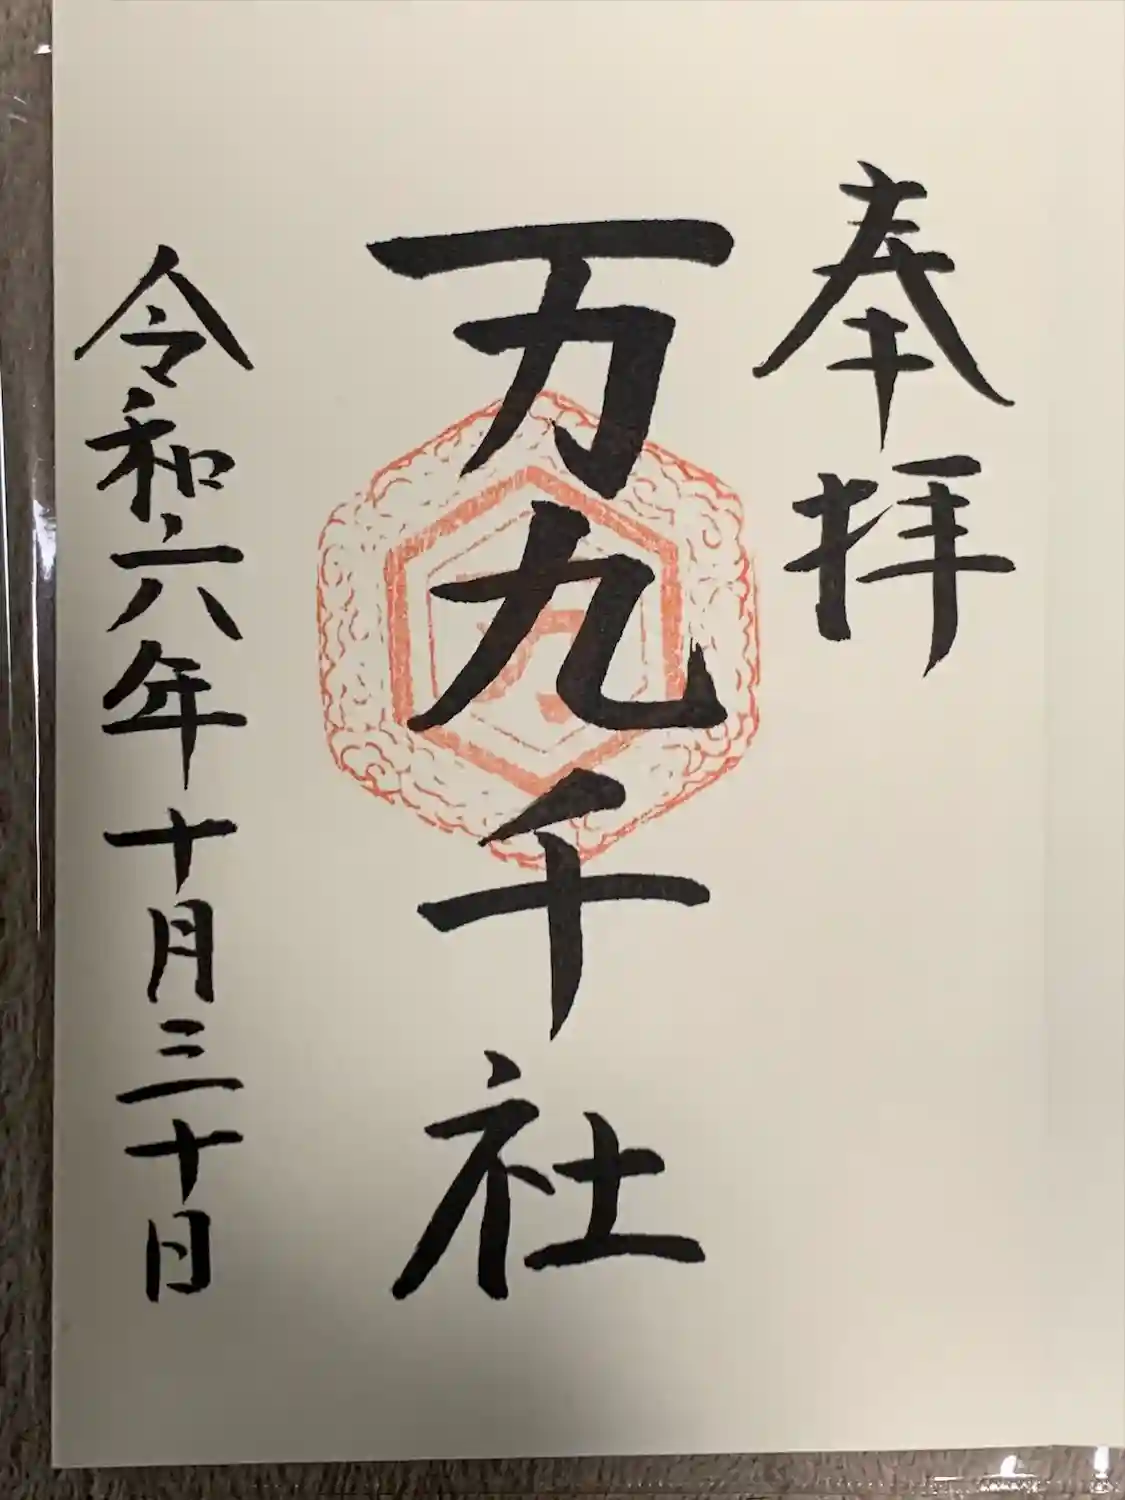 奉拝
万九千社
令和六年十月三十日